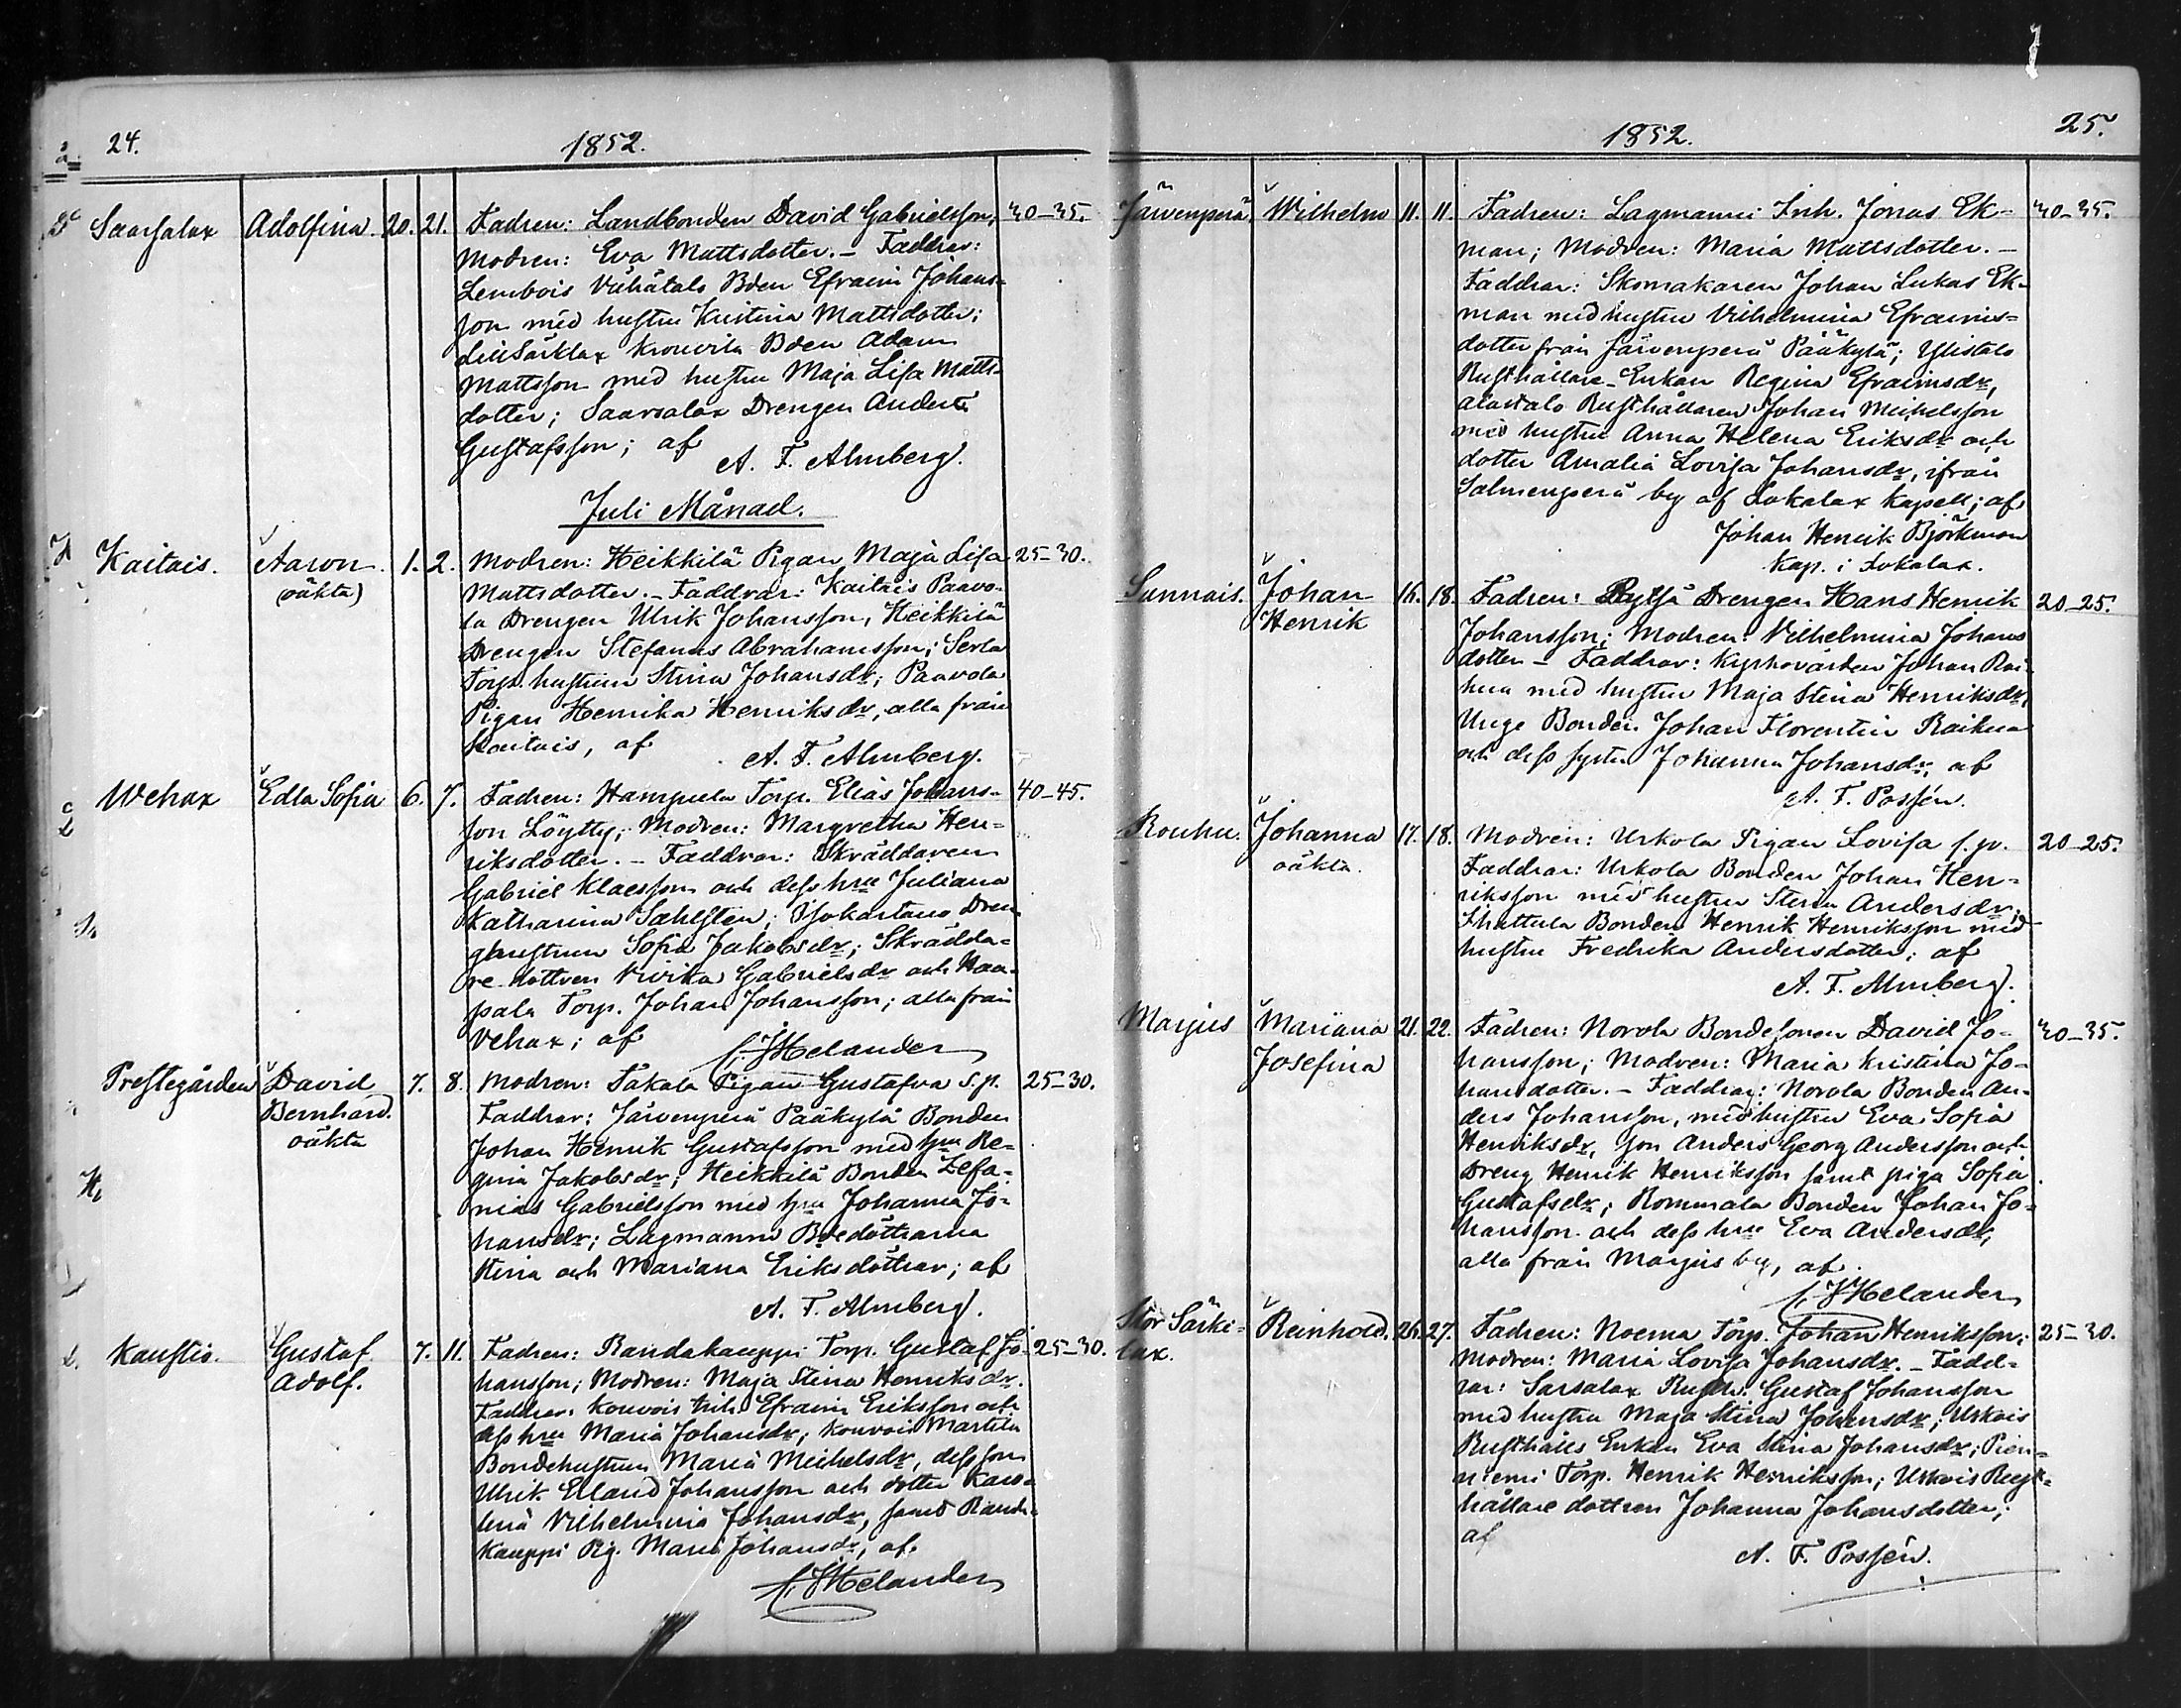 24.
1852.
Saarsalax Adolfina 20. 21. Fadren: Landbonden David Gabrielsson; 30-35.
Modren: Eva Mattsdotter. - Faddrar:
Lembois Vähätalo Bden Efraim Johans-
son med hustru Kristina Mattsdotter;
LillSärklax Krouvila Bden Adam
Mattsson med hustru Maja Lisa Matts-
dotter; Saarsalax Drengen Anders
Gustafsson; af
A. F. Almberg.
Juli Månad.
Kaitais. Aaron 1. 2. Modren: Heikkilä Pigan Maja Lisa 25-30.
(oäkta) Mattsdotter. - Faddrar: Kaitais Paavo-
la Drengen Ulrik Johansson, Heikkilä
Drengen Stefanus Abrahamsson; Serla
Torp. hustrun Stina Johansdr; Paavola
Pigan Henrika Henriksdr, alla från
Kaitais, af
A. F. Almberg.
Wehax Edla Sofia 6. 7. Fadren: Hampula Torp. Elias Johans- 40-45.
son Löytty; Modren: Margretha Hen-
riksdotter. - Faddrar: Skräddaren
Gabriel Klaesson och dess hru Juliana
Katharina Sahlsten; Isokartano Dren-
ghustrun Sofia Jakobsdr; Skrädda-
re dottren Vivika Gabrielsdr och Haa-
pala Torp. Johan Johansson; alla från
Vehax; af
Helander
Prestegården David 7. 8. Modren: Takala Pigan Gustafva s. p. 25-30.
Bernhard. Faddrar: Järvenperä Pääkylä Bonden
oäkta Johan Henrik Gustafsson med hru Re-
gina Jakobsdr; Heikkilä Bonden Zefa-
nias Gabrielsson med hru Johanna Jo-
hansdr; Lagmanni Bdedöttrarna
Stina och Mariana Eriksdöttrar; af
A. F. Almberg.
Kaustio. Gustaf 7. 11. Fadren: Randakauppi Torp. Gustaf Jo- 25-30.
Adolf. hansson; Modren: Maja Stina Henriksdr.
Faddrar: Kouvois Inh. Efraim Eriksson och
dess hru Maria Johansdr; Kouvois Martila
Bondehustrun Maria Michelsdr, dess son
Ulrik Erland Johansson och dotter Karo-
lina Vilhelmina Johansdr, samt Randa-
kauppi Pig. Maria Johansdr, af
Helander
1852.
25.
Järvenperä Wilhelm 11. 11. Fadren: Lagmanni Inh. Jonas Ek- 30-35.
man; Modren: Maria Mattsdotter. -
Faddrar: Skomakaren Johan Lukas Ek-
man med hustru Vilhelmina Efraims-
dotter från Järvenperä Pääkylä; Ylistalo
Rusthållare-Enkan Regina Efraimsdr,
alastalo Rusthållaren Johan Michelsson
med hustru Anna Helena Eriksdr och
dotter Amalia Lovisa Johansdr, ifrån
Salmenperä by af Lokalax Kapell; af
Johan Henrik Björkman
Kap. i Lokalax.
Sunnais. Johan 16. 18. Fadren: Rytsä Drengen Hans Henrik 20-25.
Henrik Johansson; Modren: Vilhelmina Johans
dotter - Faddrar: Kyrkovärden Johan Rai-
kua med hustru Maja Stina Henriksdr,
Unge Bonden Johan Florentin Raikua
och dess syster Johanna Johansdr, af
A. F. Possén.
Rouhu. Johanna 17. 18. Modren: Urkola Pigan Lovisa s. p. 20-25.
oäkta. Faddrar: Urkola Bonden Johan Hen-
riksson med hustru Stina Andersdr;
Bonden Henrik Henriksson med
hustru Fredrika Andersdotter; af
A. F. Almberg.
Marjus Mariana 21. 22. Fadren: Norola Bondesonen David Jo- 30-35.
Josefina hansson; Modren: Maria Kristina Jo-
hansdotter. - Faddrar: Norola Bonden An-
ders Johansson, med hustru Eva Sofia
Henriksdr, son Anders Georg Andersson och
Dreng Henrik Henriksson samt piga Sofia
Gustafsdr; Rommala Bonden Johan Jo-
hansson och dess hru Eva Andersdr,
alla från Marjus by, af
Helander
Stor Särki- Reinhold. 26. 27. Fadren: Noema Torp. Johan Henriksson; 25-30.
lax. Modren: Maria Lovisa Johansdr. - Fadd-
rar: Sarsalax Rusth. Gustaf Johansson
med hustru Maja Stina Johansdr; Uskois
Rusthålls Enkan Eva Stina Johansdr; Pien-
niemi Torp. Henrik Henriksson; Uskois Rust-
hållare dottren Johanna Johansdotter;
af
A. F. Possén.